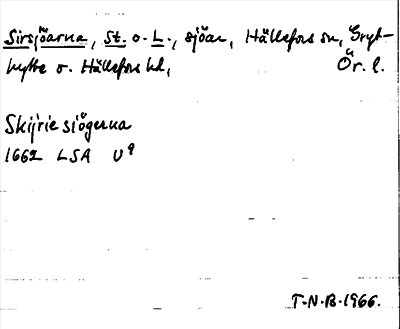 Sirsjöarna, St. o. L., sjöar, Hällefors sn, Gryt-
hytte o. Hällefors hd, Ör. l.
Skijrie siögerna
1662 LSA U9
T.N.B. 1966.